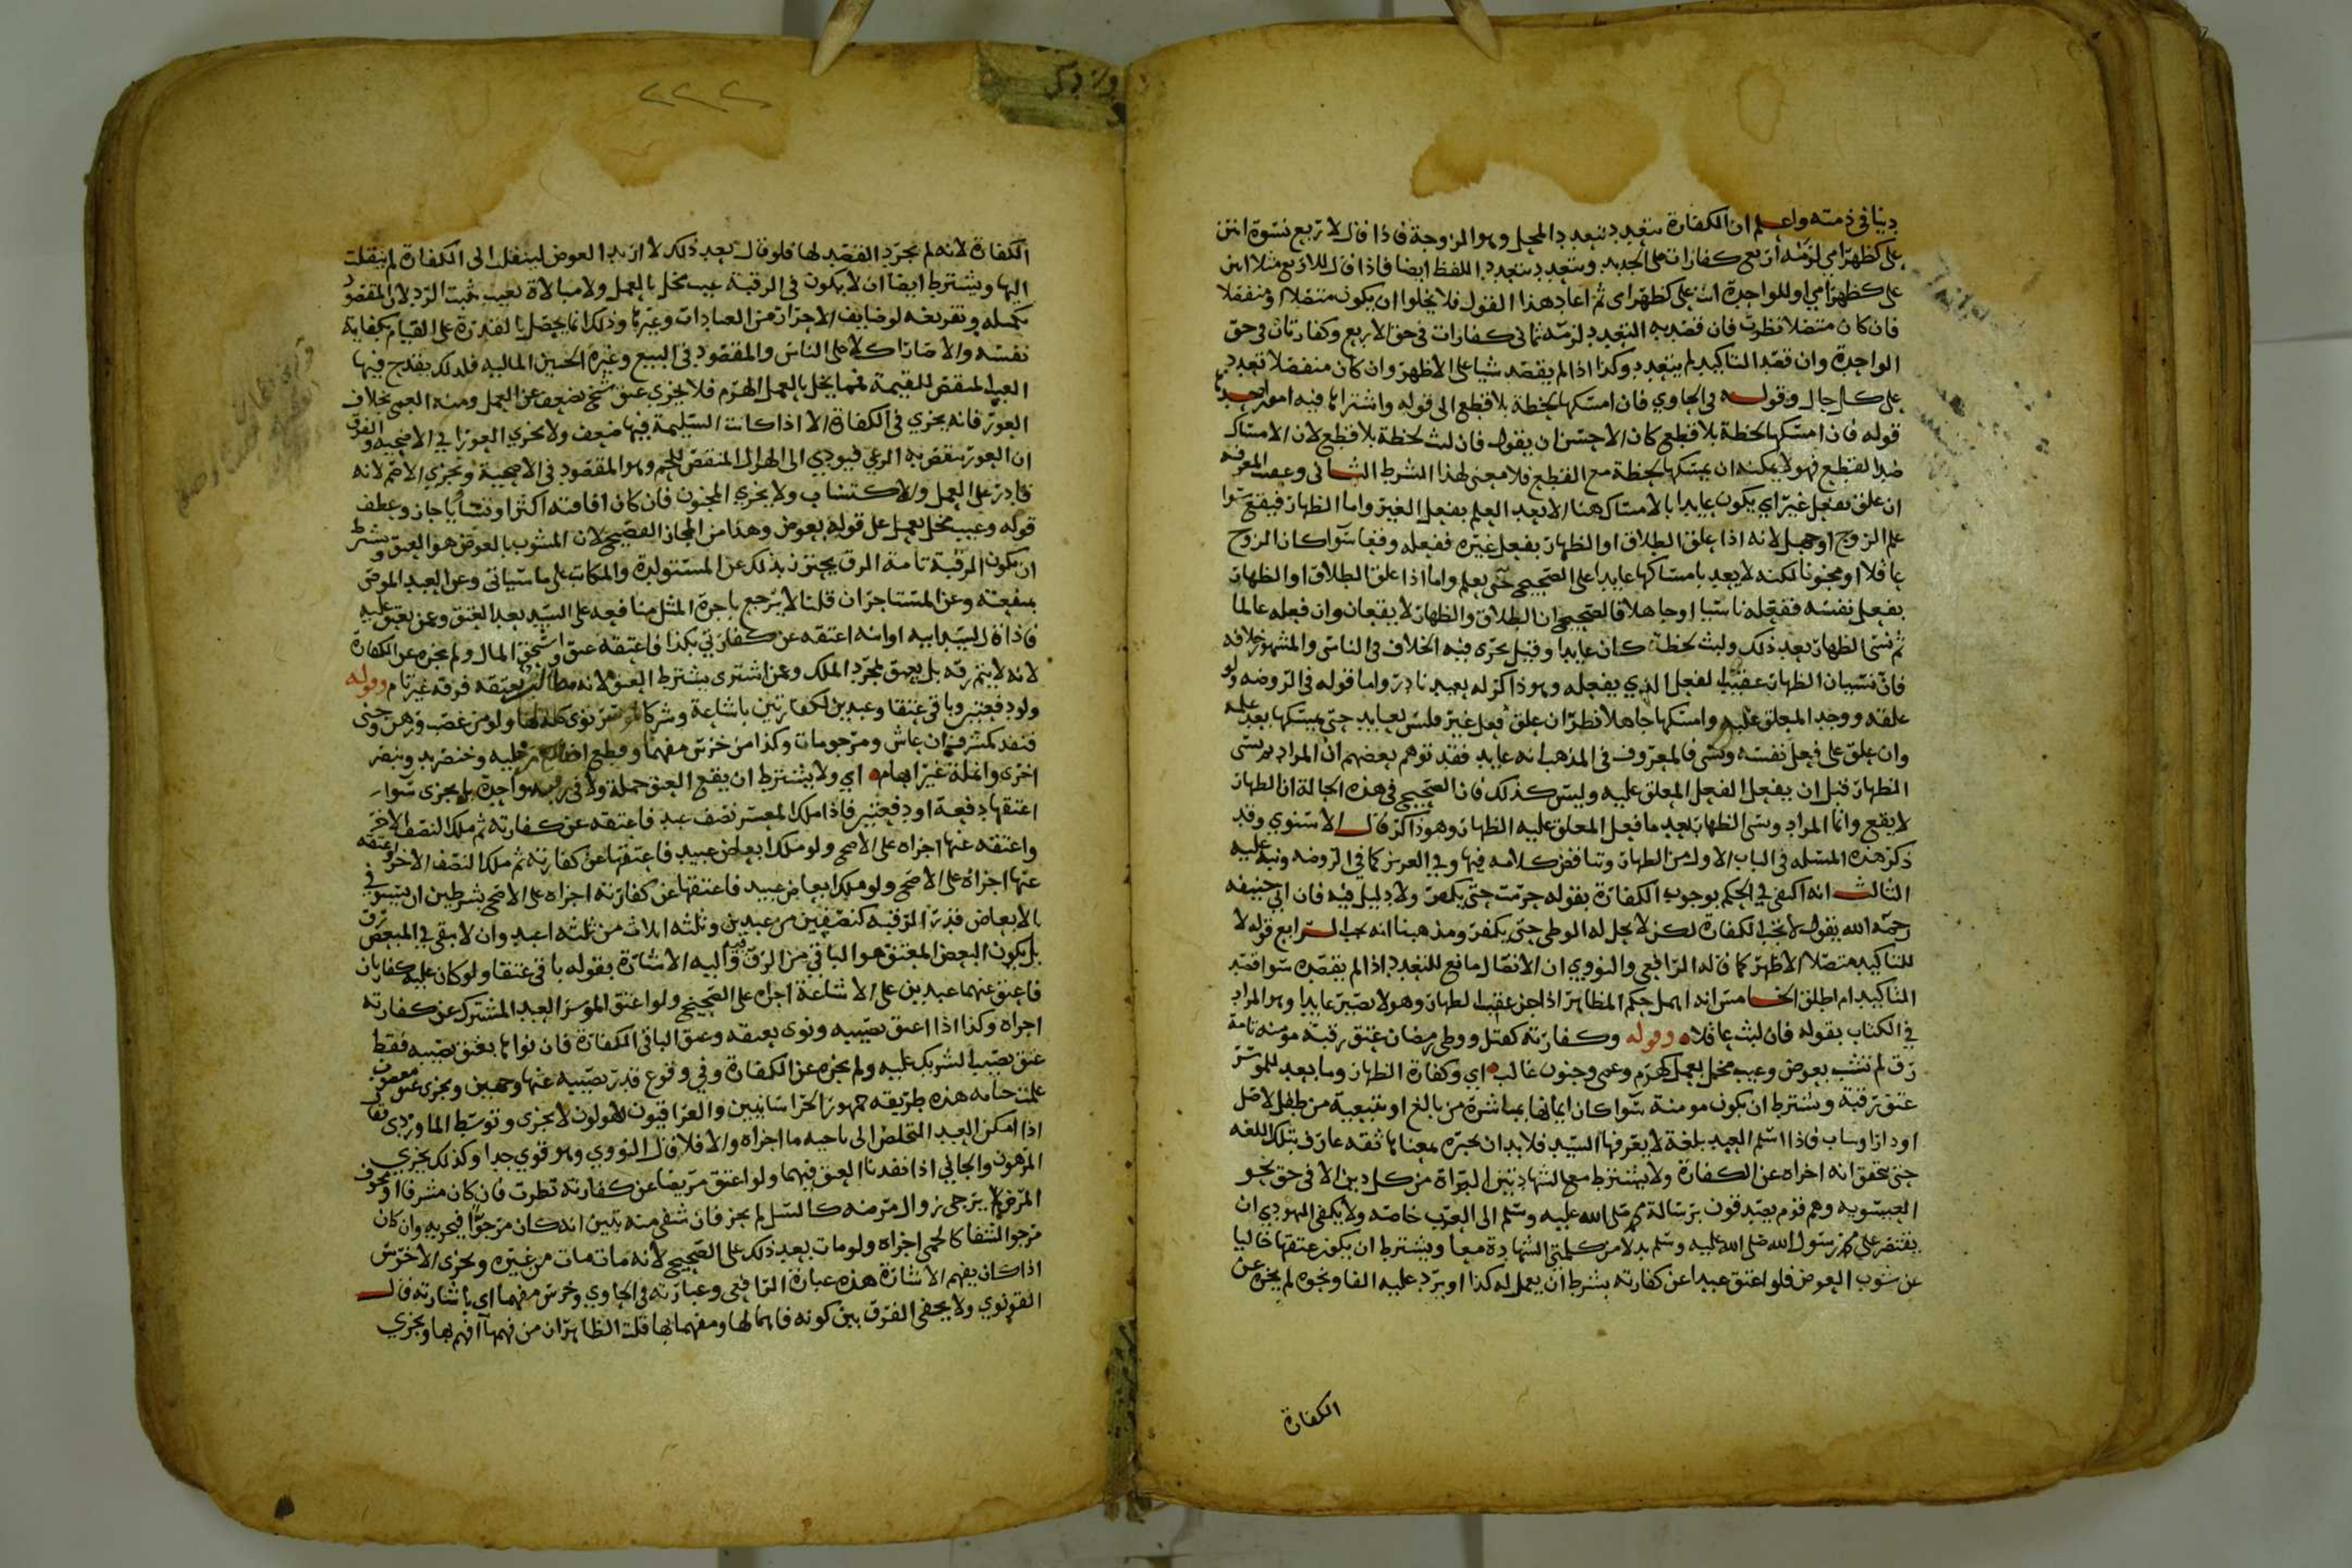 دينا في ذمته واعلم ان الكفارة تتعدد بتعدد المحل وهو الزوجة فاذا قال لاربع نسوة انتن
علي كظهر امي لزمه اربع كفارات على الجديد وتتعدد بتعدد اللفظ ايضا فاذا قال للاربع مثلا انتن
علي كظهر امي او للواحدة انت علي كظهر امي ثم اعاد هذا القول فلا يخلوا ان يكون متصلا او منفصلا
فان كان متصلا نظرت فان قصد به التعدد لزمته ثماني كفارات في حق الاربع وكفارتان في حق
الواحدة وان قصد التاكيد لم يتعدد وكذا اذا لم يقصد شيا على الاظهر وان كان منفصلا تعدد
على كل حال وقوله في الحاوي فان امسكها لحظة بلا قطع الى قوله واشترا بها فيه امور احدها
قوله فان امسكها لحظة بلا قطع كان الاحسن ان يقول فان لبث لحظة بلا قطع لان الامساك
ضد القطع فهو لا يمكنه ان يمسكها لحظة مع القطع فلا معنى لهذا الشرط الثاني وعبث المعرفه
ان علق بفعل غير اي يكون عايدا بالامساك هنا الا بعد العلم بفعل الغير واما الظهار فيقع سوا
علم الزوج او جهل لانه اذا علق الطلاق او الظهار بفعل غيره ففعله وقعا سوآ كان الزوج
عاقلا او مجنونا لكنه لا يعد بامساكها عايدا على الصحيح حتى يعلم واما اذا علق الطلاق او الظهار
بفعل نفسه ففعله ناسيا او جاهلا فالصحيح ان الطلاق والظهار لا يقعان وان فعله عالما
ثم نسي الظهار بعد ذلك ولبث لحظة كان عايدا وقيل يجري فيه الخلاف في الناسي والمشهور خلافه
فان نسيان الظهار عقيب الفعل الذي يفعله وهو ذاكر له بعيد نادر واما قوله في الروضه ولو
علقه ووجد المعلق عليه وامسكها جاهلا نظر ان علق فعل غير فليس بعايد حتى يمسكها بعد علمه
وان علق على فعل نفسه ونسي فالمعروف في المذهب انه عايد فقد توهم بعضهم ان المراد به نسي
الظهار قبل ان يفعل الفعل المعلق عليه وليس كذلك فان الصحيح في هذه الحالة ان الظهار
لا يقع وانما المراد ونسي الظهار بعد ما فعل المعلق عليه الظهار وهو ذاكر قال الاسنوي وقد
ذكر هذه المسئله في الباب الاول من الظهار وتناقض كلامه فيها وفي العزيز كما في الروضه ونبه عليه
الثالث انه اكتفى في الحكم بوجوب الكفارة بقوله حرمت حتى يكفر ولا دليل فيه فان ابي حنيفه
رحمه الله يقول لا تجب الكفارة لكن لا يحل له الوطي حتى يكفر ومذهبنا انه يجب الرابع قوله لا
للتاكيد متصلا الاظهر كما قاله الرافعي والنووي ان الاتصال مانع للتعدد اذا لم يقصده سوا قصد
التاكيد ام اطلق الخامس انه اهمل حكم المظاهر اذا جن عقب الظهار وهو لا يصير عايدا وهو المراد
في الكتاب بقوله فان لبث عاقلا وقوله وكفارته كقتل ووطي رمضان عتق رقبة مومنة تامة
رق لم تشب بعوض وعيب مخل بعمل كهرم وعمى وجنون غالب اي وكفارة الظهار وما بعد للموسر
عتق رقبة ويشترط ان يكون مومنة سوآ كان ايمانها بمباشرة من بالغ او بتبعية من طفل لاصل
او دار او ساب فاذا اسلم العبد بلغة لا يعرفها السيد فلا بد ان يخبره بمعناها ثقه عارف بتلك اللغه
حتى يتحقق انه اجزاه عن الكفارة ولا يشترط مع الشهادتين البراة من كل دين الا في حق نحو
العيسويه وهم قوم يصدقون برسالة محمد صلى الله عليه وسلم الى العرب خاصة ولا يكفي اليهودي ان
يقتصر على محمد رسول الله صلى الله عليه وسلم بدلا من كلمتي الشهادة معا ويشترط ان يكون عتقها خاليا
عن شوب العوض فلو اعتق عبدا عن كفارته بشرط ان يعمل له كذا او يرد عليه الفا ونحوه لم يجزه عن
الكفارة
٢٢٢
الكفارة لانه لم يجرد القصد لها فلو قال بعد ذلك لا اريد العوض لينقلب الى الكفارة لم ينقلب
اليها ويشترط ايضا ان لا يكون في الرقبة عيب مخل بالعمل ولا مبالاة بعيب يثبت الرد لان المقصود
تكميله وتفريغه لوضايف الاحرار من العبادات وغيرها وذلك انما يحصل بالقدرة على القيام بكفاية
نفسه والا صار كلا على الناس والمقصود في البيع وغيره الحسن الماليه فلذلك يقدح فيها
العيب المنقص للقيمة فمما يخل بالعمل الهرم فلا يجزي عتق شيخ يضعف عن العمل ومنه العمى بخلاف
العور فانه يجزي في الكفارة الا اذا كانت السليمة فيها ضعف ولا يجزي العورا في الاضحيه والفرق
ان العور ينقص به الرعي فيودي الى الهزال المنقص للحم وهو المقصود في الاضحية ويجزي الاصم لانه
قادر على العمل والاكتساب ولا يجزي المجنون فان كان افاقته اكثر او تساويا جاز وعطف
قوله وعيب مخل بعمل على قوله بعوض وهذا من المجاز الفصيح لان المشوب بالعوض هو العتق ويشترط
ان يكون الرقبة تامة الرق يحترز بذلك عن المستولدة والمكاتب على ما سياتي وعن العبد الموصى
بمنفعته وعن المستاجر ان قلنا لا يرجع باجرة المثل منافعه على السيد بعد العتق وعن يعتق عليه
فاذا قال لسيد ابيه او ابنه اعتقه عن كفارتي بكذا فاعتقه عتق واستحق المال ولم يجزه عن الكفارة
لانه لا يتم رقه بل يعتق بمجرد الملك وعن اشترى بشترط العتق لانه مطالب بعتقه فرقه غير تام وقوله
ولو دفعتين وباقي عتقا وعبدين لكفارتين باشاعة وشركا لموسر نوى كله لها ولو من غصب ورهن وجنى
فنفذ كمشرف ان عاش ومرجو مات وكذا من خرس مفهما وقطع اصابع رجليه وخنصر يد وبنصر
اخرى وانملة غير ابهام اي ولا يشترط ان يقع العتق جملة ولا في رقبة واحدة بل يجزي سوآ
اعتقها دفعة او دفعتين فاذا ملك المعسر نصف عبد فاعتقه عن كفارته ثم ملك النصف الاخر
واعتقه عنها اجزاه على الاصح ولو ملك ابعاض عبيد فاعتقها عن كفارته ثم ملك النصف الاخر واعتقه
عنها اجزاه على الاصح ولو ملك ابعاض عبيد فاعتقها عن كفارته اجزاه على الاصح بشرطين ان يستوفي
بالابعاض قدر الرقبه كنصفين من عبدين وثلثه اثلاث من ثلثه اعبد وان لا يبقى في المبعض رق
بل يكون البعض المعتق هو الباقي من الرق واليه الاشارة بقوله باقي عتقا ولو كان عليه كفارتان
فاعتق عنهما عبدين على الاشاعة اجزاه على الصحيح ولو اعتق الموسر العبد المشترك عن كفارته
اجزاه وكذا اذا اعتق نصيبه ونوى بعتقه وعتق الباقي الكفارة فان نوا بها بعتق نصيبه فقط
عتق نصيب الشريك عليه ولم يجزه عن الكفارة وفي وقوع قدر نصيبه عنها وجهين ويجزي عتق مغصوب
علمت حياته هذه طريقه جمهور الخراسانيين والعراقيون الاولون لا يجزى وتوسط الماوردي فقال
اذا امكن العبد التخلص الى ناحيه ما اجزاه والا فلا قال النووي وهو قوي جدا وكذلك يجزي
المرهون والجاني اذا نفذنا العتق فيهما ولو اعتق مريضا عن كفارته نظرت فان كان مشرفا او مخوف
المرض لا يرجى زوال مرضه كالسل لم يجز فان شفي منه تبين انه كان مرجوا فيجزيه وان كان
مرجو الشفا كالحمى اجزاه ولو مات بعد ذلك على الصحيح لانه مات مات من غيره ويجزي الاخرس
اذا كان يفهم الاشارة هذه عبارة الرافعي وعبارته في الحاوي وخرس مفهما اي باشارته قال
القونوي ولا يخفى الفرق بين كونه فاهما لها ومفهما بها قلت الظاهر ان من فهمها افهم بها ويجزي